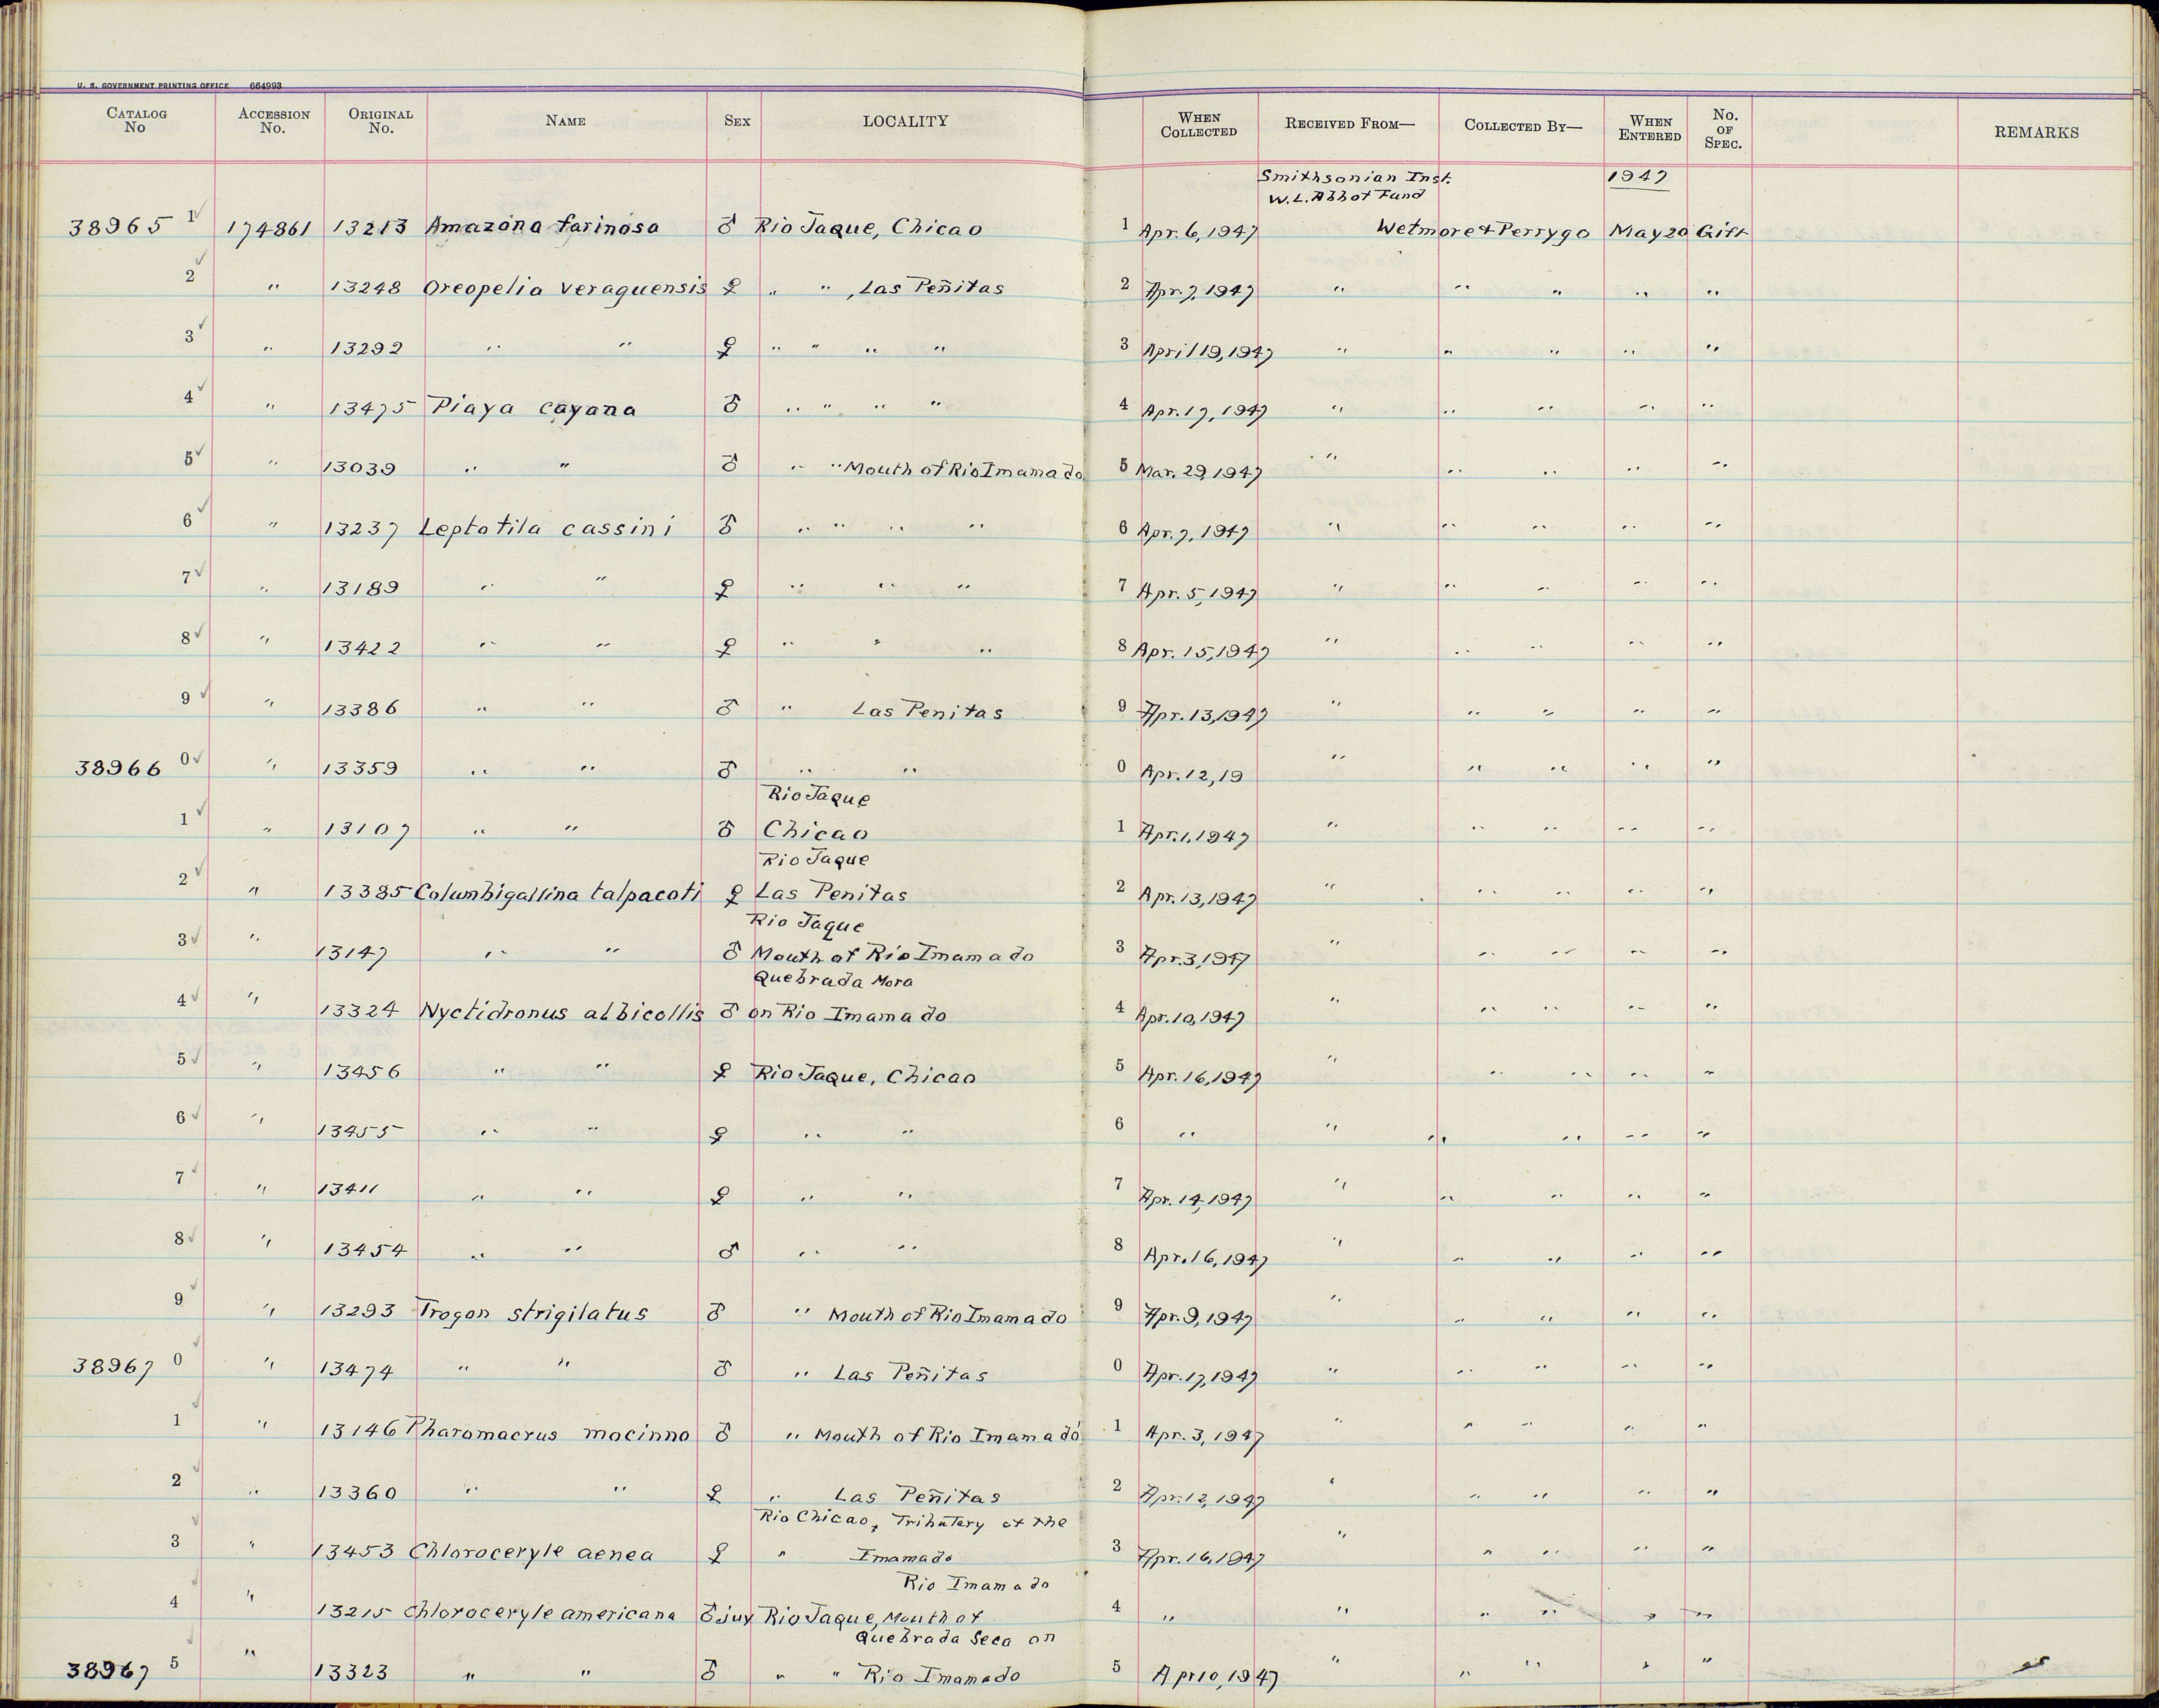 U. S. GOVERNMENT PRINTING OFFICE 664993
CATALOG No ACCESSION No. ORIGINAL No. NAME SEX LOCALITY WHEN COLLECTED RECEIVED FROM— COLLECTED BY— WHEN ENTERED No. OF SPEC. REMARKS
Smithsonian Inst. 1947
W. L. Abbot Fund
38965 1 174861 13213 Amazona farinosa ♂ Rio Jaque, Chicao 1 Apr. 6, 1947 Wetmore & Perrygo May 20 Gift
2 " 13248 Oreopelia veraguensis ♀ " " , Las Peñitas 2 Apr. 7, 1947 " " " " "
3 " 13292 " " ♀ " " " " 3 April 19, 1947 " " " " "
4 " 13475 Piaya cayana ♂ " " " " 4 Apr. 17, 1947 " " " " "
5 " 13039 " " ♂ " " Mouth of Rio Imamado 5 Mar. 29, 1947 " " " " "
6 " 13237 Leptotila cassini ♂ " " " " 6 Apr. 7, 1947 " " " " "
7 " 13189 " " ♀ " " " 7 Apr. 5, 1947 " " " " "
8 " 13422 " " ♀ " " " 8 Apr. 15, 1947 " " " " "
9 " 13386 " " ♂ " Las Penitas 9 Apr. 13, 1947 " " " " "
38966 0 " 13359 " " ♂ " " 0 Apr. 12, 19 " " " " "
Rio Jaque
1 " 13107 " " ♂ Chicao 1 Apr. 1, 1947 " " " " "
Rio Jaque
2 " 13385 Columbigallina talpacoti ♀ Las Penitas 2 Apr. 13, 1947 " " " " "
Rio Jaque
3 " 13147 " " ♂ Mouth of Rio Imamado 3 Apr. 3, 1947 " " " " "
Quebrada Mora
4 " 13324 Nyctidronus albicollis ♂ on Rio Imamado 4 Apr. 10, 1947 " " " " "
5 " 13456 " " ♀ Rio Jaque, Chicao 5 Apr. 16, 1947 " " " " "
6 " 13455 " " ♀ " " 6 " " " " " "
7 " 13411 " " ♀ " " 7 Apr. 14, 1947 " " " " "
8 " 13454 " " ♂ " " 8 Apr. 16, 1947 " " " " "
9 " 13293 Trogon strigilatus ♂ " Mouth of Rio Imamado 9 Apr. 9, 1947 " " " " "
38967 0 " 13474 " " ♂ " Las Peñitas 0 Apr. 17, 1947 " " " " "
1 " 13146 Pharomacrus mocinno ♂ " Mouth of Rio Imamado 1 Apr. 3, 1947 " " " " "
2 " 13360 " " ♀ " Las Peñitas 2 Apr. 12, 1947 " " " " "
Rio Chicao, Tributary of the
3 " 13453 Chloroceryle aenea ♀ " Imamado 3 Apr. 16, 1947 " " " " "
Rio Imamado
4 " 13215 Chloroceryle americana ♂ juv Rio Jaque, Mouth of 4 " " " " " "
Quebrada Seca on
38967 5 " 13323 " " ♂ " " Rio Imamado 5 Apr 10, 1947 " " " " "